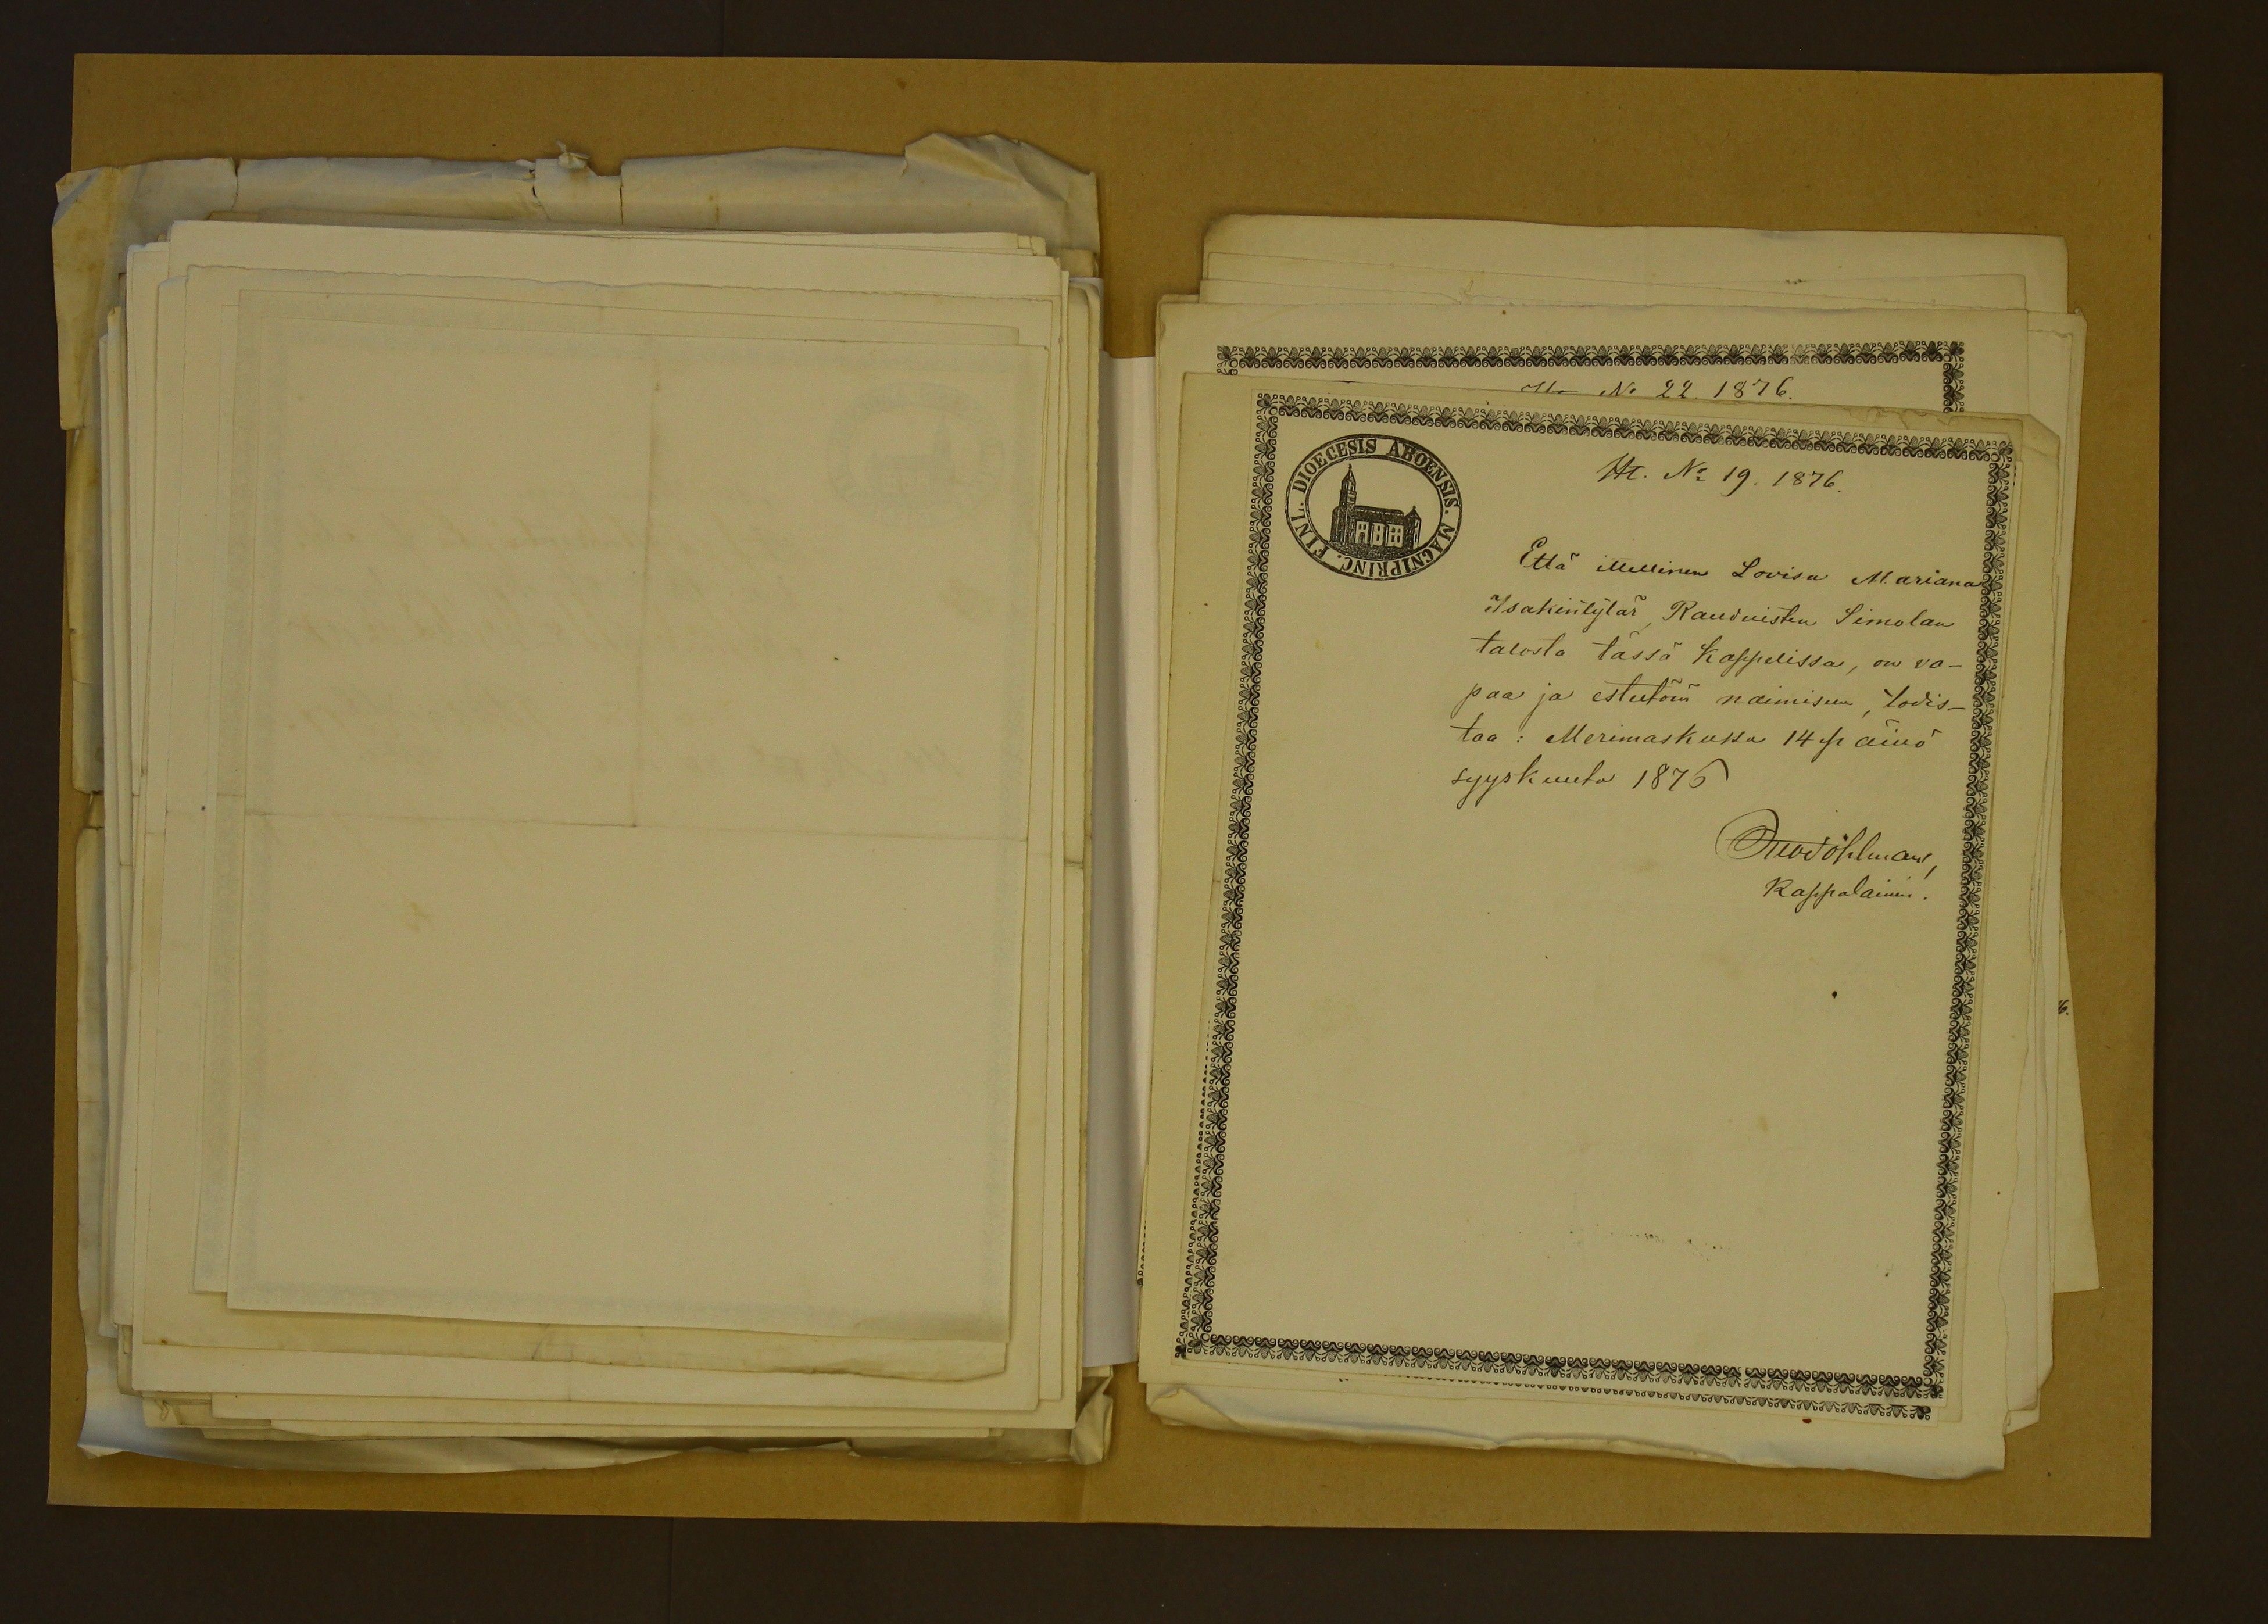 No 22. 1876.
DIOECESIS ABOENSIS. MAGNIPRINC. FINL.
Ht. No 19. 1876.
Että itellinen Lovisa Mariana
Isakintytär, Rauduisten Simolan
talosta tässä kappelissa, on va-
paa ja esteetöin naimiseen, todis-
taa: Merimaskussa 14 p äivä
syyskuuta 1876
Kappalainen.